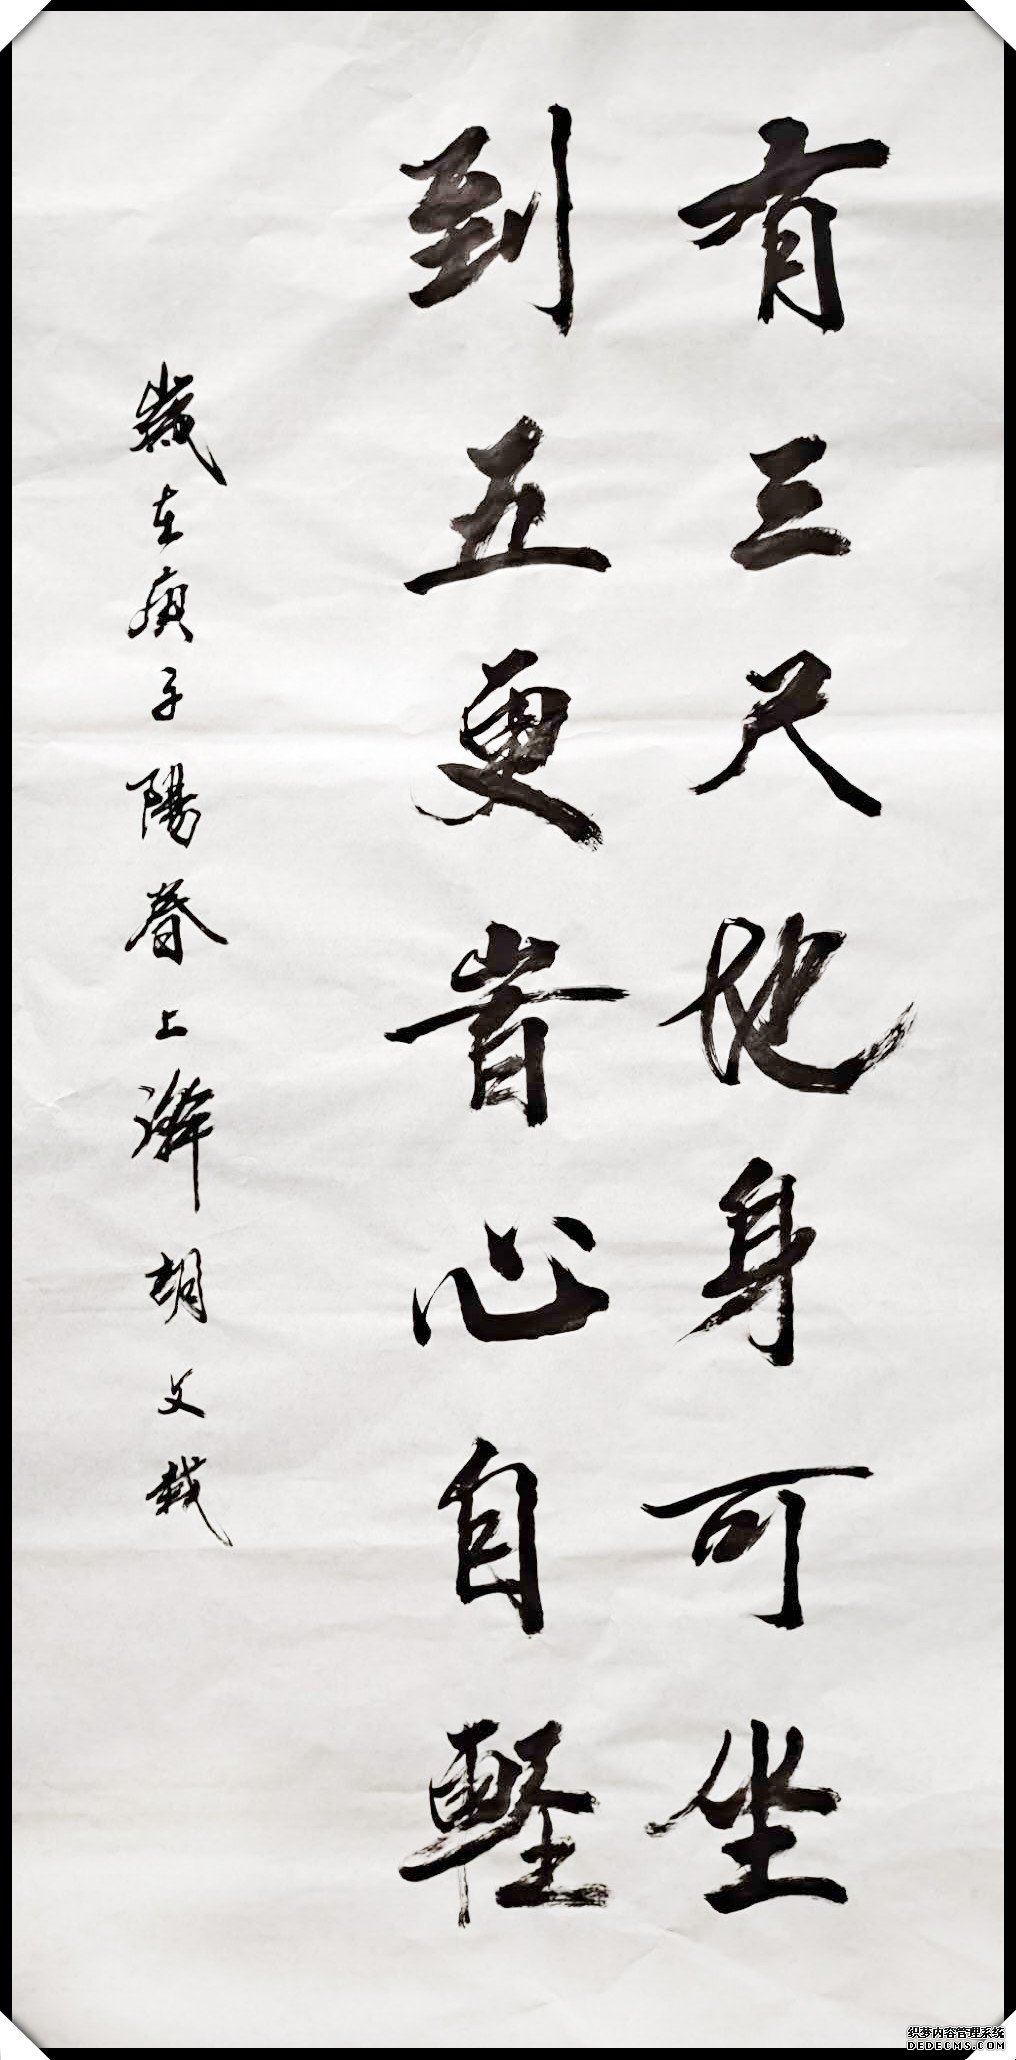 有三尺地身可坐
到五更时心自輕
歲在庚子陽春上澣胡文載
织梦内容管理系统
DEDECMS.COM